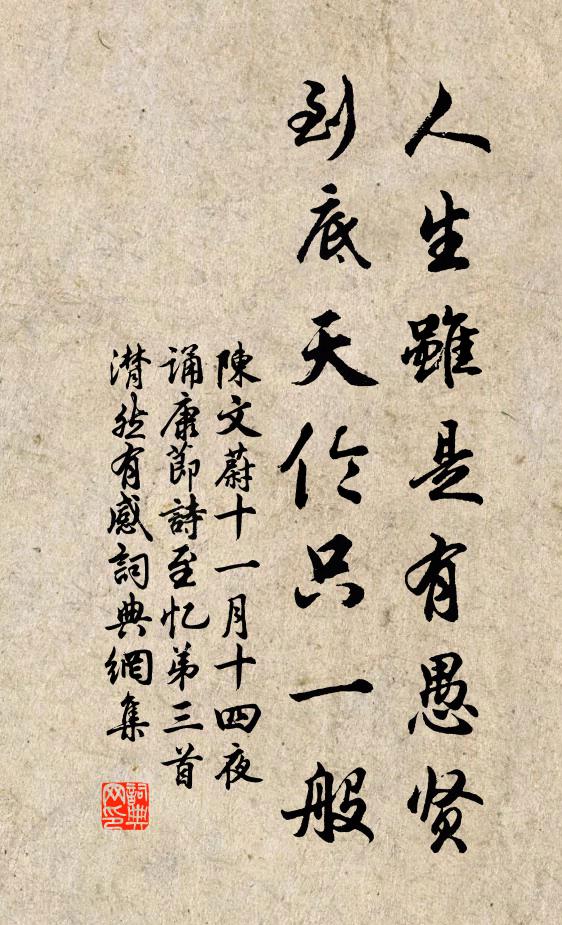 人生雖是有愚贤
到底天伦只一般
陳文蔚十一月十四夜
誦康節詩至忆弟三首
潸然有感詞典網集
詞典网印